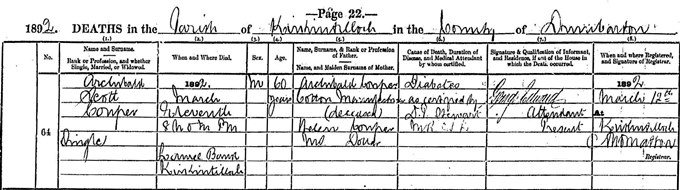 Page 22.
1892. DEATHS in the Parish of Kirkintilloch in the County of Dumbarton
(1.) (2.) (3.) (4.) (5.) (6.) (7.) (8.)
No.
Name and Surname.
Rank or Profession, and whether Single, Married, or Widowed.
When and Where Died.
Sex.
Age.
Name, Surname, & Rank or Profession of Father.
Name, and Maiden Surname of Mother.
Cause of Death, Duration of Disease, and Medical Attendant by whom certified.
Signature & Qualification of Informant, and Residence, if out of the House in which the Death occurred.
When and where Registered, and Signature of Registrar.
64
Archibald
Scott
Couper
Single
1892
March
Eleventh
Kirkintilloch
M
60
years
Archibald Couper
Cotton Manufacturer
(deceased)
Helen Couper
M.S. Douie
Diabetes
as certified by
Attendant
Present
1892
March 12th
At
Kirkintilloch
Registrar.